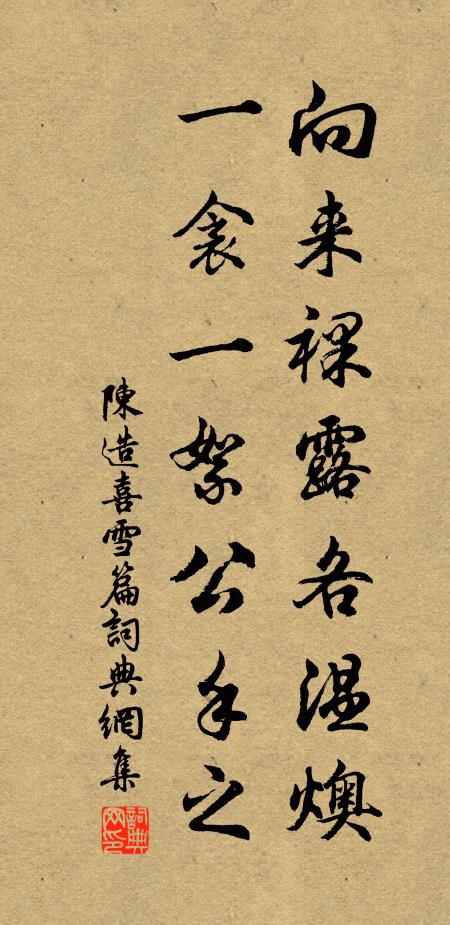 向来裸露各温燠
一衾一絮公手之
陳造喜雪篇詞典網集
詞典网印